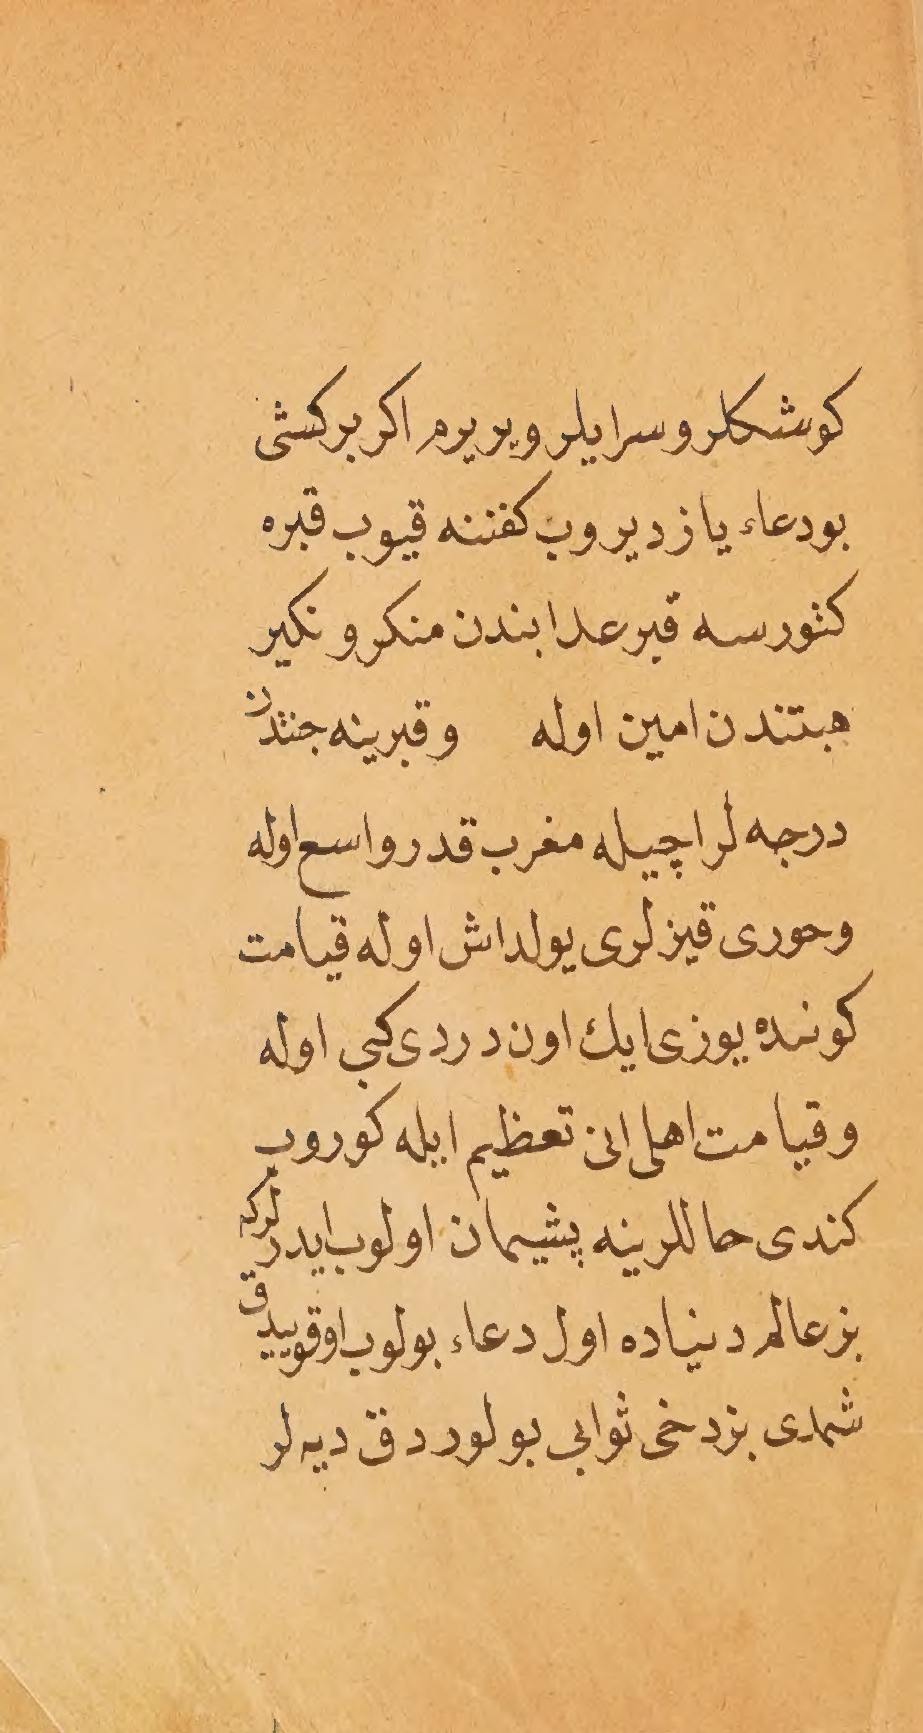 كوشكلر و سرايلر ويريرم اكر بر كشى
بو دعاء يازديروب كفننه قيوب قبره
كتورسه قبر عدابندن منكر و نكير
هبتندن امين اوله و قبرينه جنتدن
درجه لر اچيله مغرب قدر واسع اوله
و حورى قيزلرى يولداش اوله قيامت
كوننده يوزى ايك اون دردى كبى اوله
و قيامت اهلى انى تعظيم ايله كوروب
كندى حاللرينه پشيمان اولوب ايدرلركه
بز عالم دنياده اول دعاء بولوب اوقويیدق
شمدى بزدخى ثوابى بولوردق ديه لر